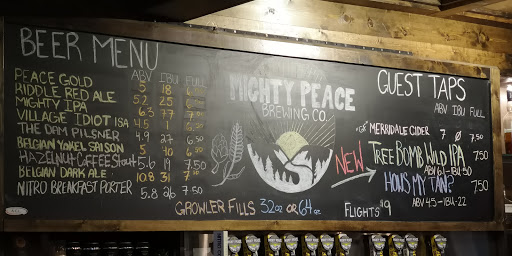 BEER MENU
ABV IBU FULL
PEACE GOLD 5 18 6
RIDDLE RED ALE 5.2 25 6
MIGHTY IPA 6.3 77
VILLAGE IDIOT ISA 4.5
THE DAM PILSNER 4.9 27 6.50
BELGIAN YOKEL SAISON 5 40
HAZELNUT COFFEE Stout 5.6 19 7.50
BELGIAN DARK ALE 10.8 31 7.50
NITRO BREAKFAST PORTER 5.8 26 7.50
MIGHTY PEACE
BREWING CO.
GROWLER FILLS 32oz OR 64oz
FLIGHTS $9
GUEST TAPS
ABV IBU FULL
GF MERRIDALE CIDER 7 Ø 7.50
NEW TREE BOMB WILD IPA 7.50
HOWS MY TAN? 7.50
ABV 4.5 - IBU 22